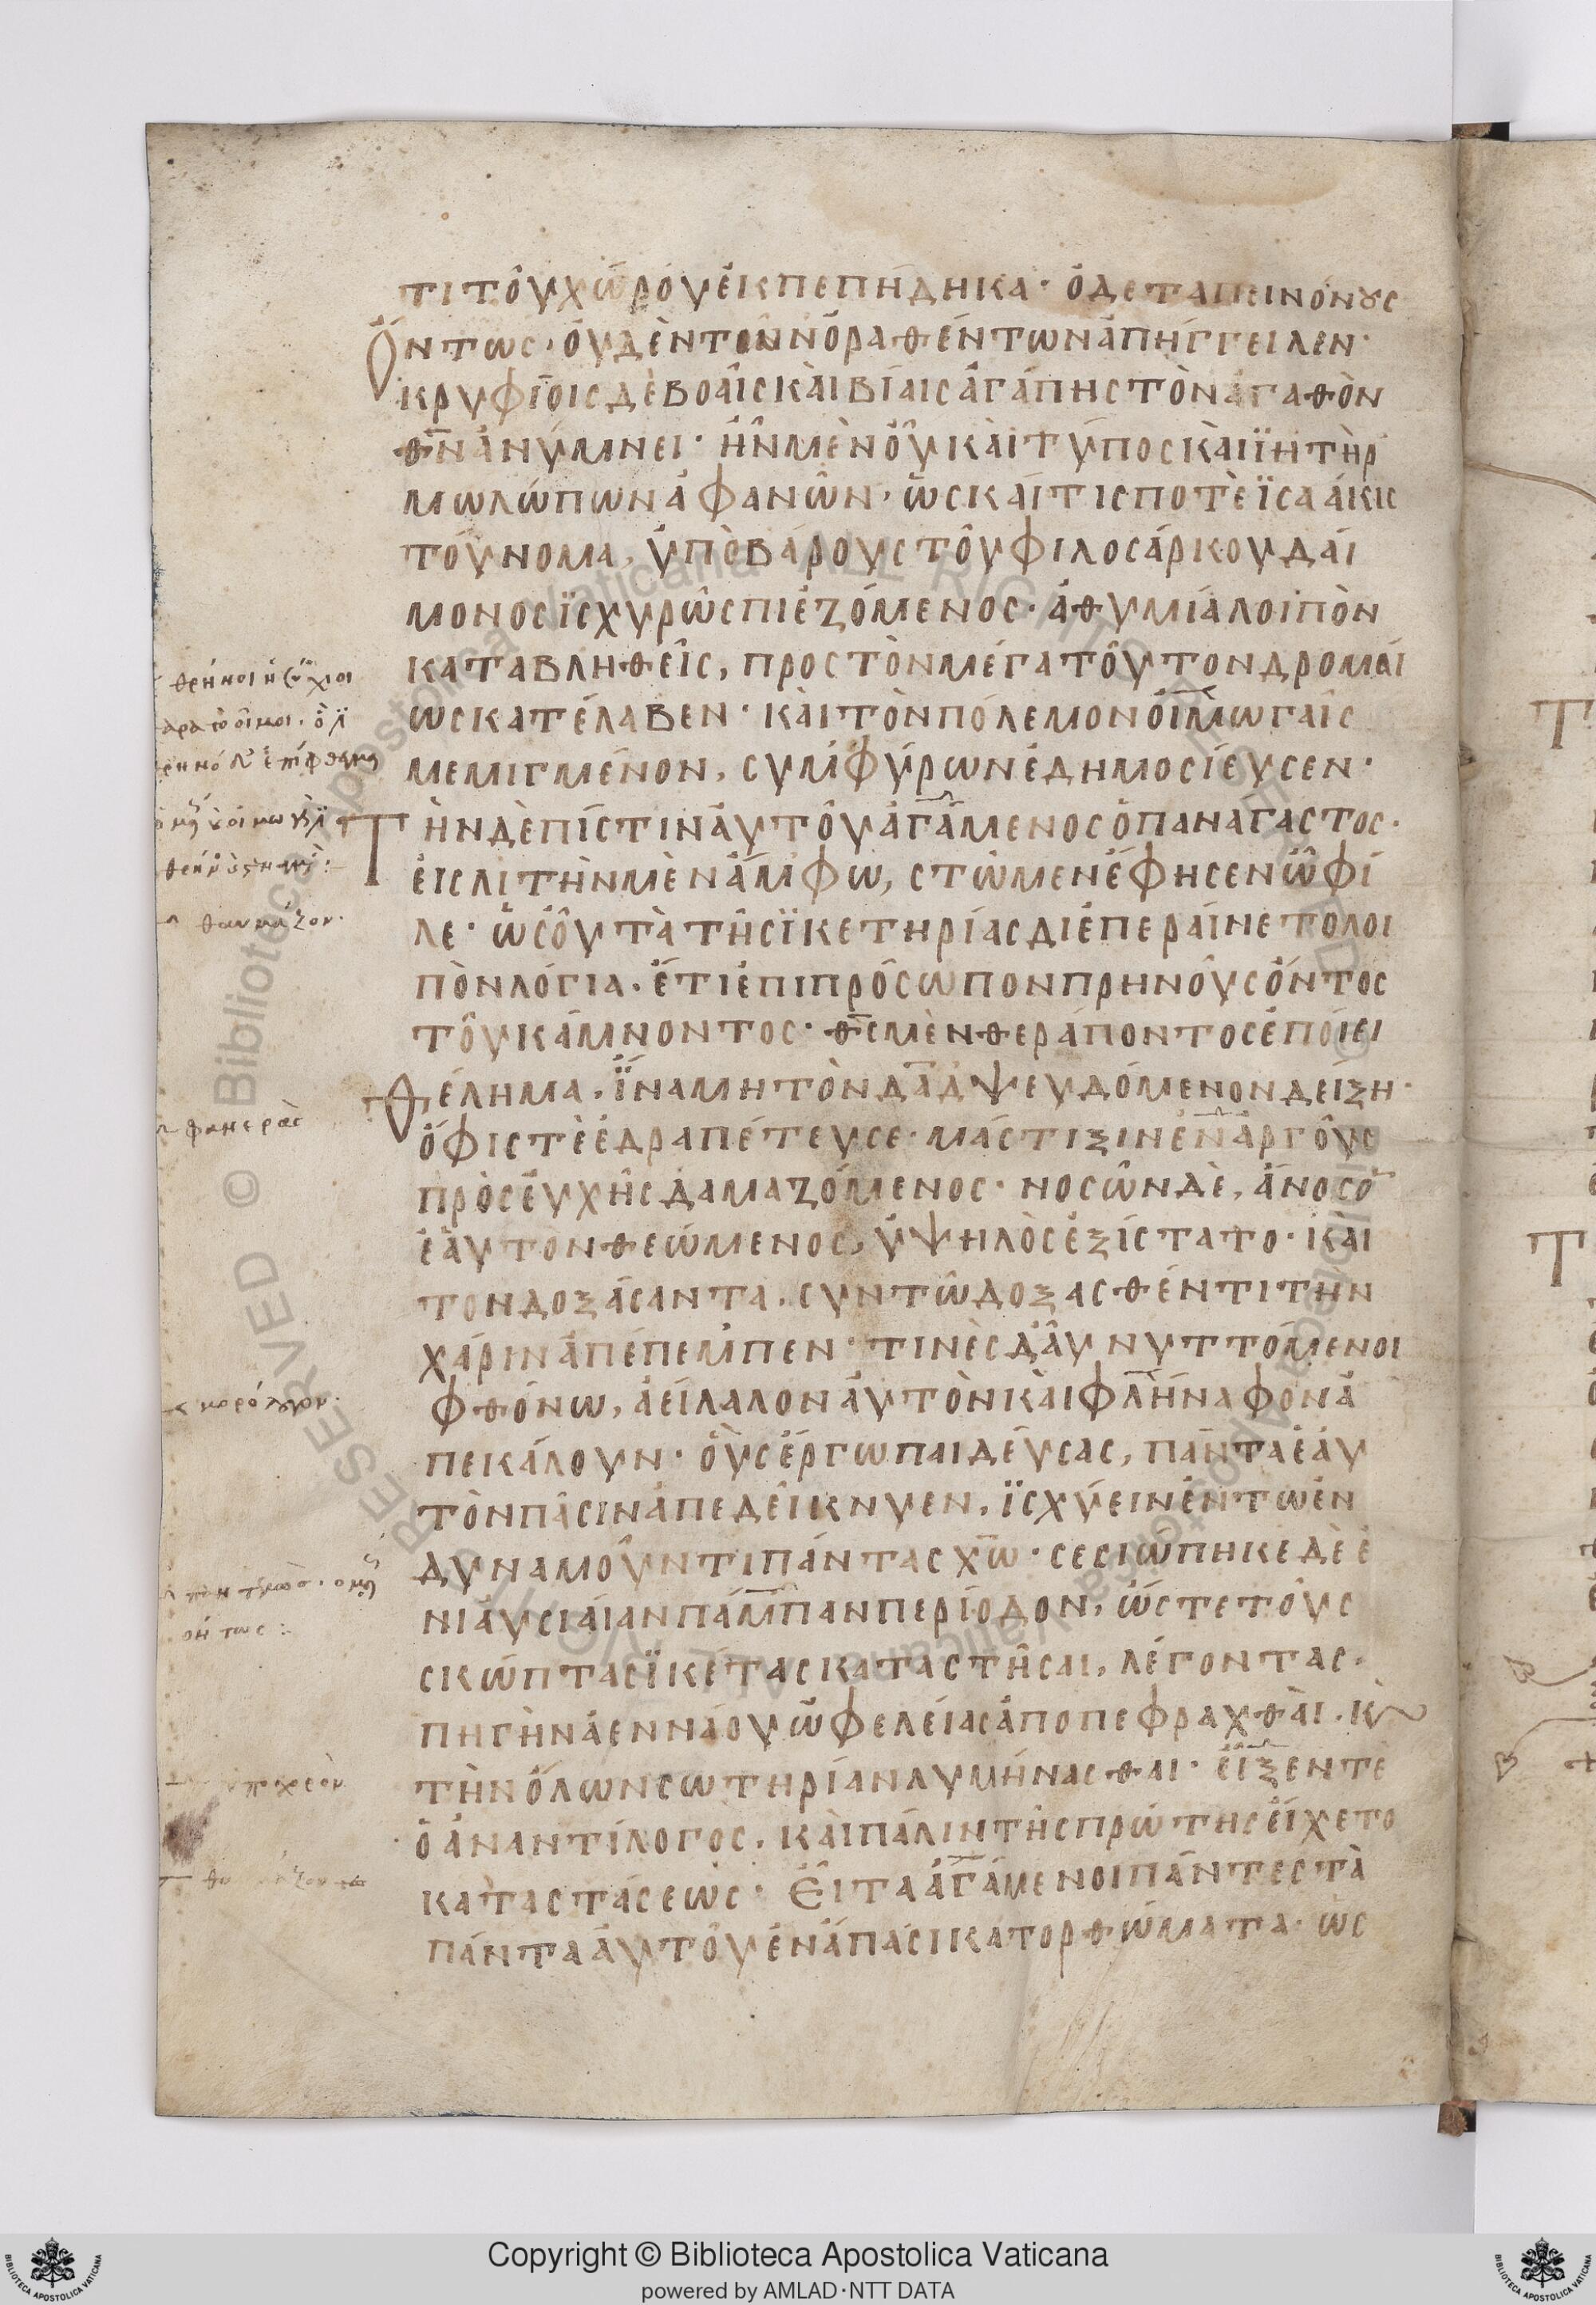 ΤΙ ΤΟῦ ΧΏΡΟΥ ἐΚΠΕΠΉΔΗΚΑ· Ὁ ΔΕ ΤΑΠΕΙΝΌΝΟΥΣ
ὌΝΤΩΣ· ΟΥΔῈΝ ΤῶΝ ὉΡΑΘΈΝΤΩΝ ἈΠΉΓΓΕΙΛΕΝ·
ΚΡΥΦΊΟΙΣ ΔῈ ΒΟΑῖΣ ΚΑῚ ΒΊΑΙΣ ἈΓΆΠΗΣ ΤῸΝ ἈΓΑΘῸΝ
ΘΝ ἈΝΎΜΝΕΙ· ἮΝ ΜῈΝ ΟὖΝ ΚΑῚ ΤΎΠΟΣ ΚΑῚ ΪΗΤῊΡ
ΜΩΛΏΠΩΝ ἈΦΑΝῶΝ· ὭΣ ΚΑΊ ΤΙΣ ΠΟΤῈ ΪΣΑΆΚΙΣ
ΤΟὔΝΟΜΑ, ὙΠῸ ΒΆΡΟΥΣ ΤΟῦ ΦΙΛΟΣΆΡΚΟΥ ΔΑΊ
ΜΟΝΟΣ ΪΣΧΥΡῶΣ ΠΙΕΖΌΜΕΝΟΣ· ἈΘΥΜΊΑ ΛΟΙΠῸΝ
ΚΑΤΑΒΛΗΘΕῖΣ, ΠΡΟΣ ΤῸΝ ΜΈΓΑ ΤΟῦΤΟΝ ΔΡΟΜΑΊ
ΩΣ ΚΑΤΈΛΑΒΕΝ· ΚΑῚ ΤῸΝ ΠΌΛΕΜΟΝ ΟἸΜΩΓΑῖΣ
ΜΕΜΙΓΜΈΝΟΝ, ΣΥΜΦΎΡΩΝ ἘΔΗΜΟΣΊΕΥΣΕΝ·
ΤῊΝ ΔῈ ΠΊΣΤΙΝ ΑὐΤΟῦ ἈΓΆΜΕΝΟΣ Ὁ ΠΑΝΆΓΑΣΤΟΣ·
ἘΙΣ ΛΙΤῊΝ ΜῈΝ ἌΜΦΩ, ΣΤΏΜΕΝ ἜΦΗΣΕΝ Ὦ ΦΊ
ΛΕ· ὩΣ ΟὖΝ ΤᾺ ΤῆΣ ΪΚΕΤΗΡΊΑΣ ΔΙΕΠΕΡΑΊΝΕΤΟ ΛΟΙ
ΠῸΝ ΛΌΓΙΑ· ἜΤΙ ἘΠΙ ΠΡΌΣΩΠΟΝ ΠΡΗΝΟῦΣ ὌΝΤΟΣ
ΤΟῦ ΚΆΜΝΟΝΤΟΣ· ΘΣ ΜῈΝ ΘΕΡΆΠΟΝΤΟΣ ἘΠΟΊΕΙ
ΘΈΛΗΜΑ, ἽΝΑ ΜΗ ΤῸΝ ΔΑΔ ΨΕΥΔΌΜΕΝΟΝ ΔΕΊΞΗ·
ὌΦΙΣ ΤῈ ἘΔΡΑΠΈΤΕΥΣΕ· ΜΆΣΤΙΞΙΝ ἘΝΑΡΓΟῦΣ
ΠΡΟΣΕΥΧῆΣ ΔΑΜΑΖΌΜΕΝΟΣ· ΝΟΣῶΝ ΔῈ, ἌΝΟΣΟ
ἙΑΥΤΟΝ ΘΕΏΜΕΝΟΣ, ὙΨΗΛῸΣ ἘΞΊΣΤΑΤΟ· ΚΑῚ
ΤΟΝ ΔΟΞΆΣΑΝΤΑ, ΣΥΝ ΤῶΔΟΞΑΣΘΈΝΤΙ ΤΗΝ
ΧΆΡΙΝ ἈΠΈΠΕΜΠΕΝ· ΤΙΝῈΣ ΔΑὖ ΝΥΤΤΌΜΕΝΟΙ
ΦΘΌΝΩ, ἈΕΊΛΑΛΟΝ ΑὐΤῸΝ ΚΑῚ ΦΛΉΝΑΦΟΝ Ἀ
ΠΕΚΆΛΟΥΝ· ΟὓΣ ἜΡΓΩ ΠΑΙΔΕΎΣΑΣ, ΠΆΝΤΑ ἙΑΥ
ΤῸΝ ΠᾶΣΙΝ ἈΠΕΔΕΊΚΝΥΕΝ, ΪΣΧΎΕΙΝ ἘΝ ΤΩ ἘΝ
ΔΥΝΑΜΟῦΝΤΙ ΠΆΝΤΑΣ ΧΩ· ΣΕΣΙΏΠΗΚΕ ΔῈ Ἐ
ΝΙΑΥΣΙΑΊΑΝ ΠΆΜΠΑΝ ΠΕΡΊΟΔΟΝ, ὭΣΤΕ ΤΟῦΣ
ΣΚΏΠΤΑΣ ΪΚΈΤΑΣ ΚΑΤΑΣΤῆΣΑΙ, ΛΈΓΟΝΤΑΣ,
ΠΗΓῊΝ ἈΕΝΝΆΟΥ ὨΦΕΛΕΊΑΣ ἈΠΟΠΕΦΡΑΧΘΑΙ, Κ
ΤῊΝ ὍΛΩΝ ΣΩΤΗΡΊΑΝ ΛΥΜΉΝΑΣΘΑΙ· ΕἶΞΕΝ ΤΕ
Ὁ ἈΝΑΝΤΊΛΟΓΟΣ, ΚΑῚ ΠΆΛΙΝ ΤῆΣ ΠΡΏΤΗΣ ΕἼΧΕΤΟ
ΚΑΤΑΣΤΆΣΕΩΣ· ΕἾΤΑ ἈΓΆΜΕΝΟΙ ΠΆΝΤΕΣ ΤᾺ
ΠΆΝΤΑ ΑὐΤΟῦ ἘΝ ἍΠΑΣΙ ΚΑΤΟΡΘΏΜΑΤΑ· ὩΣ
θαυμάζον·
φανερὰς
Copyright © Biblioteca Apostolica Vaticana
powered by AMLAD·NTT DATA